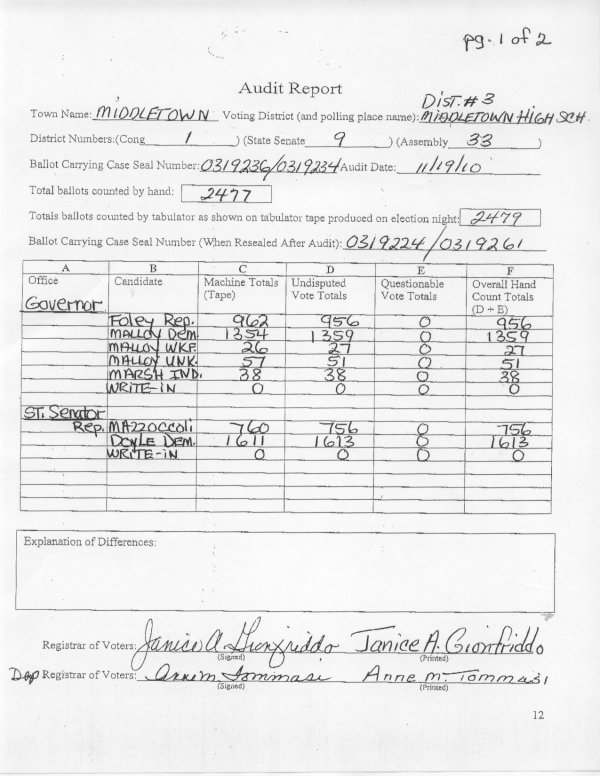 pg. 1 of 2
Audit Report
DIST. # 3
Town Name: MIDDLETOWN Voting District (and polling place name): MIDDLETOWN HIGH SCH.
District Numbers:(Cong 1 ) (State Senate 9 ) (Assembly 33 )
Ballot Carrying Case Seal Number: 0319236/0319234 Audit Date: 11/19/10
Total ballots counted by hand: 2477
Totals ballots counted by tabulator as shown on tabulator tape produced on election night: 2479
Ballot Carrying Case Seal Number (When Resealed After Audit): 0319224/0319261
A B C D E F
Office Candidate Machine Totals (Tape) Undisputed Vote Totals Questionable Vote Totals Overall Hand Count Totals (D + E)
Governor
Foley Rep. 962 956 0 956
MALLOY DEM. 1354 1359 0 1359
MALLOY WKF. 26 27 0 27
MALLOY UNK. 57 51 0 51
MARSH IND. 38 38 0 38
WRITE-IN 0 0 0 0
ST. Senator
Rep. MAZZOCColi 760 756 0 756
DOYLE DEM. 1611 1613 0 1613
WRITE-IN 0 0 0 0
Explanation of Differences:
Registrar of Voters: Janice A. Gionfriddo Janice A. Gionfriddo
(Signed) (Printed)
Dep Registrar of Voters: Anne M Tommasi Anne M. Tommasi
(Signed) (Printed)
12